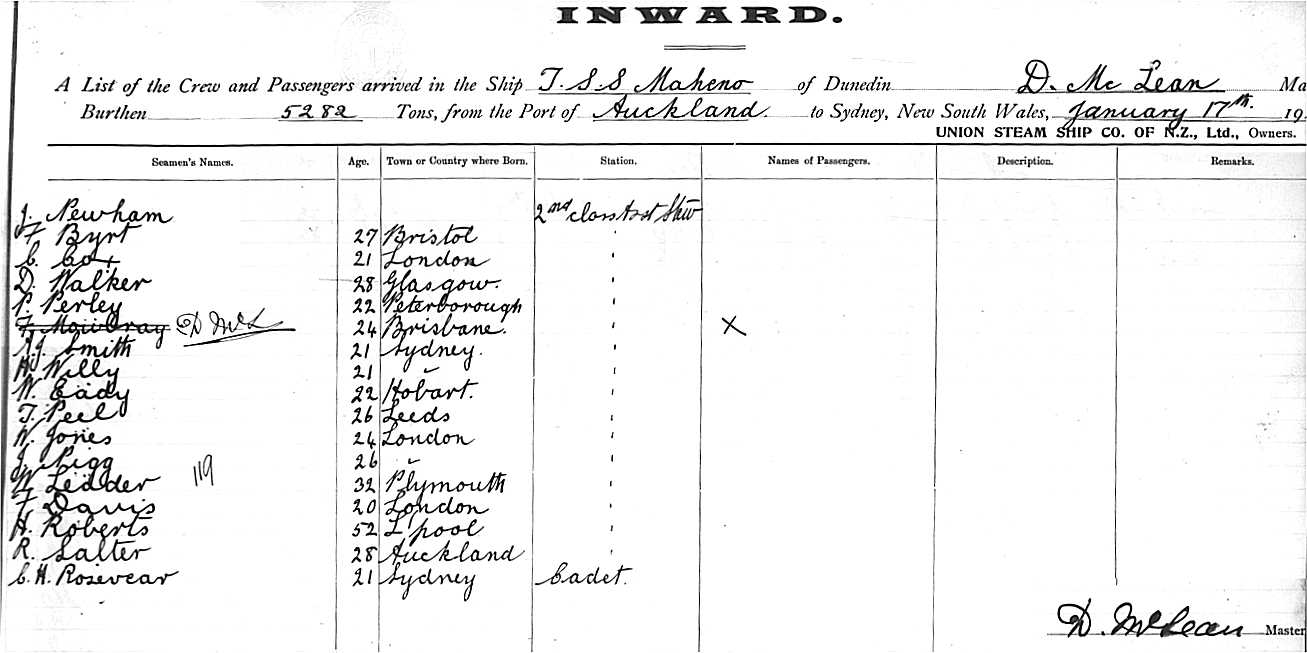 INWARD.
A List of the Crew and Passengers arrived in the Ship T.S.S Maheno of Dunedin D. Mc Lean Ma
Burthen 5282 Tons, from the Port of Auckland. to Sydney, New South Wales, January 17th. 19
UNION STEAM SHIP CO. OF N.Z., Ltd., Owners.
Seamen's Names. Age. Town or Country where Born. Station. Names of Passengers. Description. Remarks.
J. Newham 2nd class Asst Stew
F Byrt 27 Bristol '
C. Cox 21 London '
D. Walker 28 Glasgow. '
P. Perley 22 Peterborough '
F. Mowbray D McL 24 Brisbane. ' X
A.J. Smith 21 Sydney. '
H. Willy 21 " '
W. Eady 22 Hobart. '
T. Peel 26 Leeds '
W. Jones 24 London '
J. Pigg 26 " '
W. Leader 119 32 Plymouth '
F. Davis 20 London '
H. Roberts 52 L'pool '
R. Salter 28 Auckland '
C. H. Rosevear 21 Sydney Cadet.
D. McLean Master